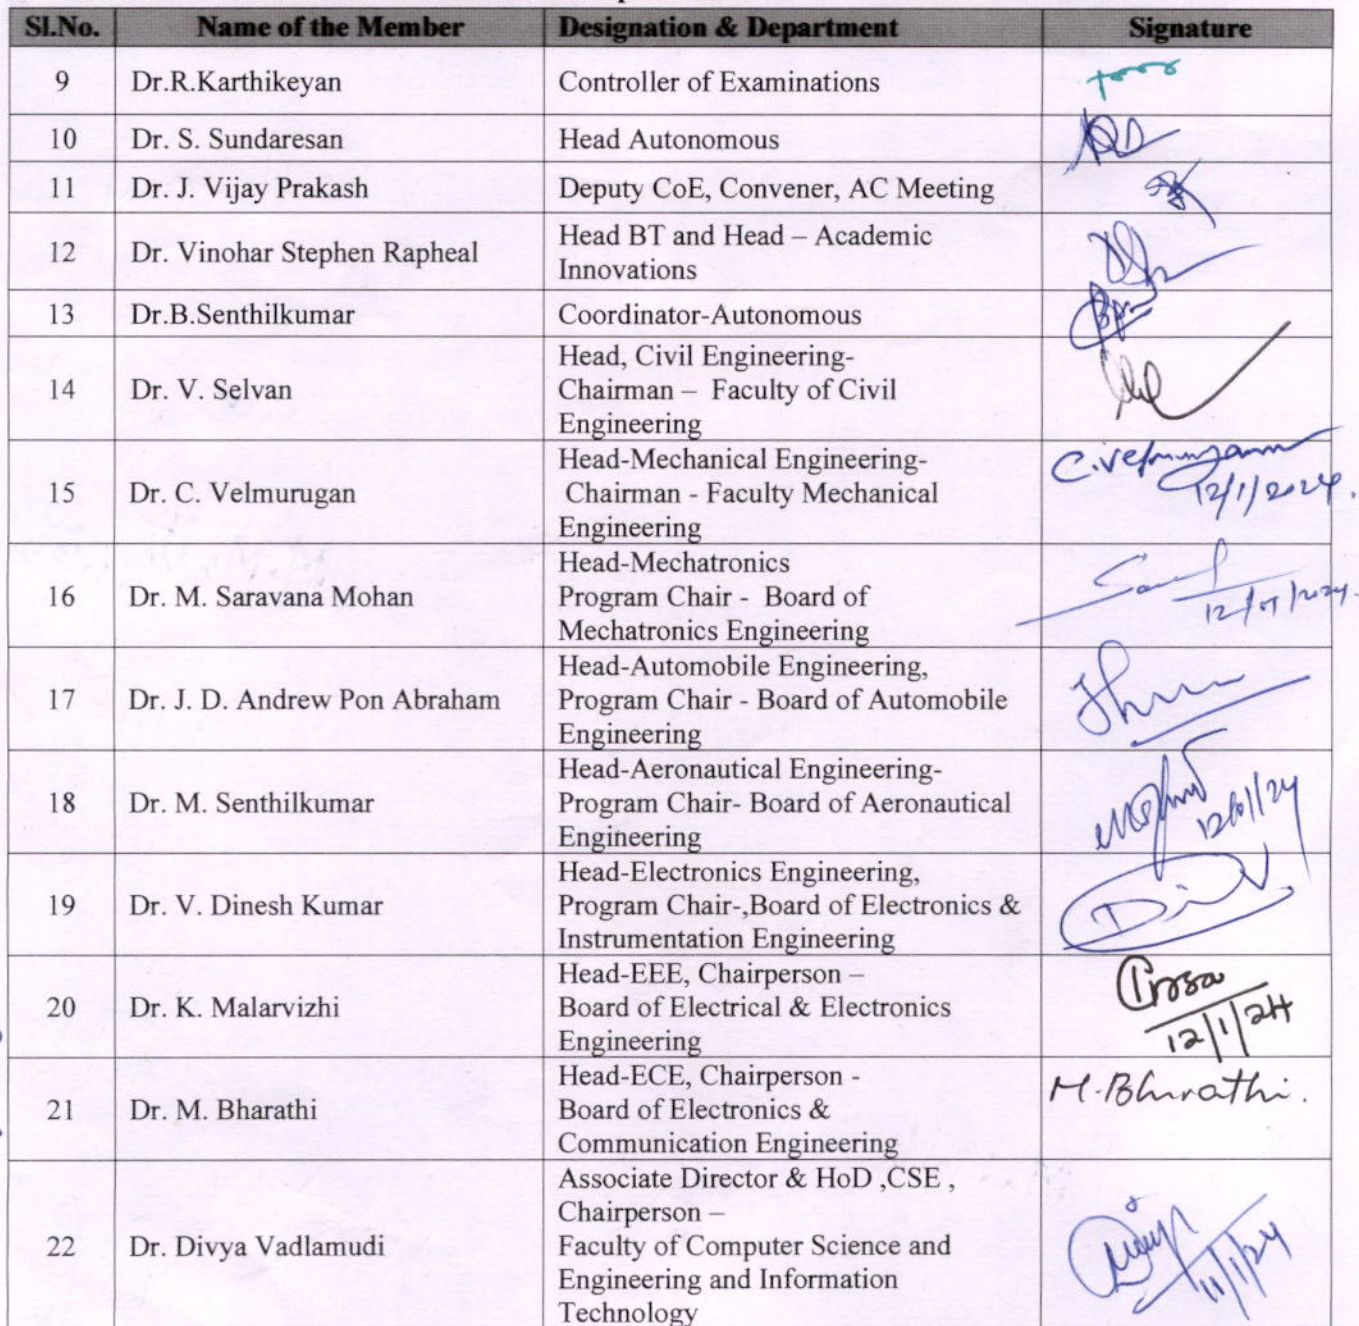 Sl.No. Name of the Member Designation & Department Signature
9 Dr.R.Karthikeyan Controller of Examinations
10 Dr. S. Sundaresan Head Autonomous
11 Dr. J. Vijay Prakash Deputy CoE, Convener, AC Meeting
12 Dr. Vinohar Stephen Rapheal Head BT and Head – Academic
Innovations
13 Dr.B.Senthilkumar Coordinator-Autonomous
14 Dr. V. Selvan Head, Civil Engineering-
Chairman – Faculty of Civil
Engineering
15 Dr. C. Velmurugan Head-Mechanical Engineering-
Chairman - Faculty Mechanical
Engineering
C.Velmurugan
12/1/2024.
16 Dr. M. Saravana Mohan Head-Mechatronics
Program Chair - Board of
Mechatronics Engineering
12/01/2024.
17 Dr. J. D. Andrew Pon Abraham Head-Automobile Engineering,
Program Chair - Board of Automobile
Engineering
18 Dr. M. Senthilkumar Head-Aeronautical Engineering-
Program Chair- Board of Aeronautical
Engineering
12/01/24
19 Dr. V. Dinesh Kumar Head-Electronics Engineering,
Program Chair-,Board of Electronics &
Instrumentation Engineering
20 Dr. K. Malarvizhi Head-EEE, Chairperson –
Board of Electrical & Electronics
Engineering
12/1/24
21 Dr. M. Bharathi Head-ECE, Chairperson -
Board of Electronics &
Communication Engineering
M.Bharathi.
22 Dr. Divya Vadlamudi Associate Director & HoD ,CSE ,
Chairperson –
Faculty of Computer Science and
Engineering and Information
Technology
11/1/24